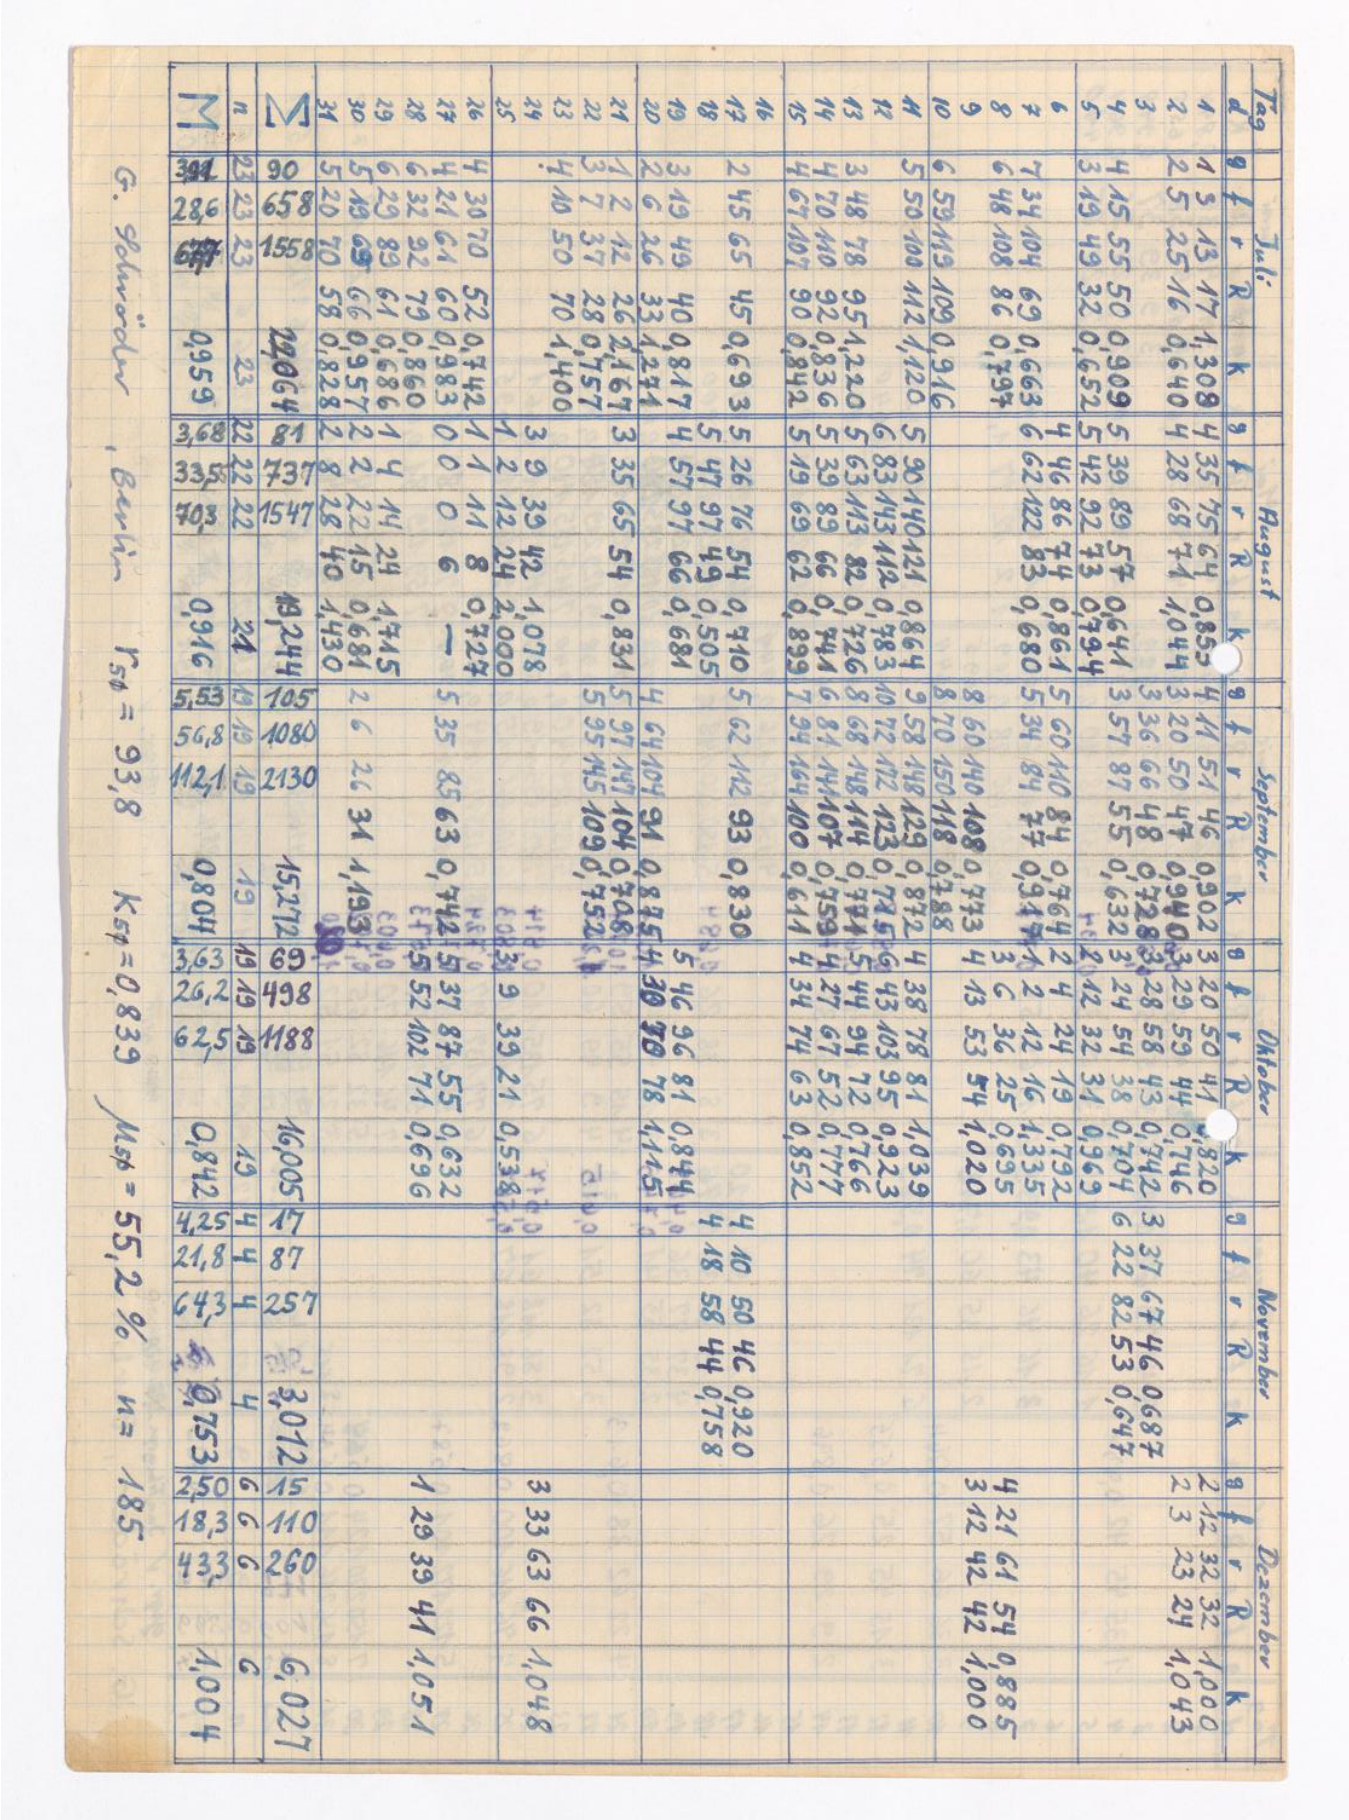 Tag Juli August September Oktober November Dezember
d g f r R k g f r R k g f r R k g f r R k g f r R k g f r R k
1 1 3 13 17 1,308 4 35 75 64 0,853 4 11 51 46 0,902 3 20 50 41 0,820 2 12 32 32 1,000
2 2 5 25 16 0,640 4 28 68 71 1,044 3 20 50 47 0,940 3 29 59 44 0,746 2 3 23 24 1,043
3 3 36 66 48 0,728 3 28 58 43 0,742 3 37 67 46 0,687
4 4 15 55 50 0,909 5 39 89 57 0,641 3 57 87 55 0,632 3 24 54 38 0,704 6 22 82 53 0,647
5 3 19 49 32 0,652 5 42 92 73 0,794 2 12 32 31 0,969
6 4 46 86 74 0,861 5 60 110 84 0,764 2 4 24 19 0,792
7 7 34 104 69 0,663 6 62 122 83 0,680 5 34 84 77 0,917 1 2 12 16 1,335
8 6 48 108 86 0,797 3 6 36 25 0,695 4 21 61 54 0,885
9 8 60 140 108 0,773 4 13 53 54 1,020 3 12 42 42 1,000
10 6 59 119 109 0,916 8 70 150 118 0,788
11 5 50 100 112 1,120 5 90 140 121 0,864 9 58 148 129 0,872 4 38 78 81 1,039
12 6 83 143 112 0,783 10 72 172 123 0,715 6 43 103 95 0,923
13 3 48 78 95 1,220 5 63 113 82 0,726 8 68 148 114 0,771 5 44 94 72 0,766
14 4 70 110 92 0,836 5 39 89 66 0,741 6 81 141 107 0,759 4 27 67 52 0,777
15 4 67 107 90 0,842 5 19 69 62 0,899 7 94 164 100 0,611 4 34 74 63 0,852
16
17 2 45 65 45 0,693 5 26 76 54 0,710 5 62 112 93 0,830 4 10 50 46 0,920
18 5 47 97 49 0,505 4 18 58 44 0,758
19 3 19 49 40 0,817 4 57 97 66 0,681 5 46 96 81 0,844
20 2 6 26 33 1,271 4 64 104 91 0,875 4 30 70 78 1,115
21 1 2 12 26 2,167 3 35 65 54 0,831 5 97 147 104 0,708
22 3 7 37 28 0,757 5 95 145 109 0,752
23 4 10 50 70 1,400
24 3 9 39 42 1,078 3 33 63 66 1,048
25 1 2 12 24 2,000 3 9 39 21 0,538
26 4 30 70 52 0,742 1 1 11 8 0,727
27 4 21 61 60 0,983 0 0 0 6 — 5 35 85 63 0,742 5 37 87 55 0,632
28 6 32 92 79 0,860 5 52 102 71 0,696 1 29 39 41 1,051
29 6 29 89 61 0,686 1 4 14 24 1,715
30 5 19 69 66 0,957 2 2 22 15 0,681 2 6 26 31 1,193
31 5 20 70 58 0,828 2 8 28 40 1,430
Σ 90 658 1558 22,064 81 737 1547 19,244 105 1080 2130 15,272 69 498 1188 16,005 17 87 257 3,012 15 110 260 6,027
n 23 23 23 23 22 22 22 21 19 19 19 19 19 19 19 19 4 4 4 4 6 6 6 6
M 3,91 28,6 67,7 0,959 3,68 33,5 70,3 0,916 5,53 56,8 112,1 0,804 3,63 26,2 62,5 0,842 4,25 21,8 64,3 0,753 2,50 18,3 43,3 1,004
G. Schröder, Berlin rsp = 93,8 Ksp = 0,839 Msp = 55,2 % n = 185